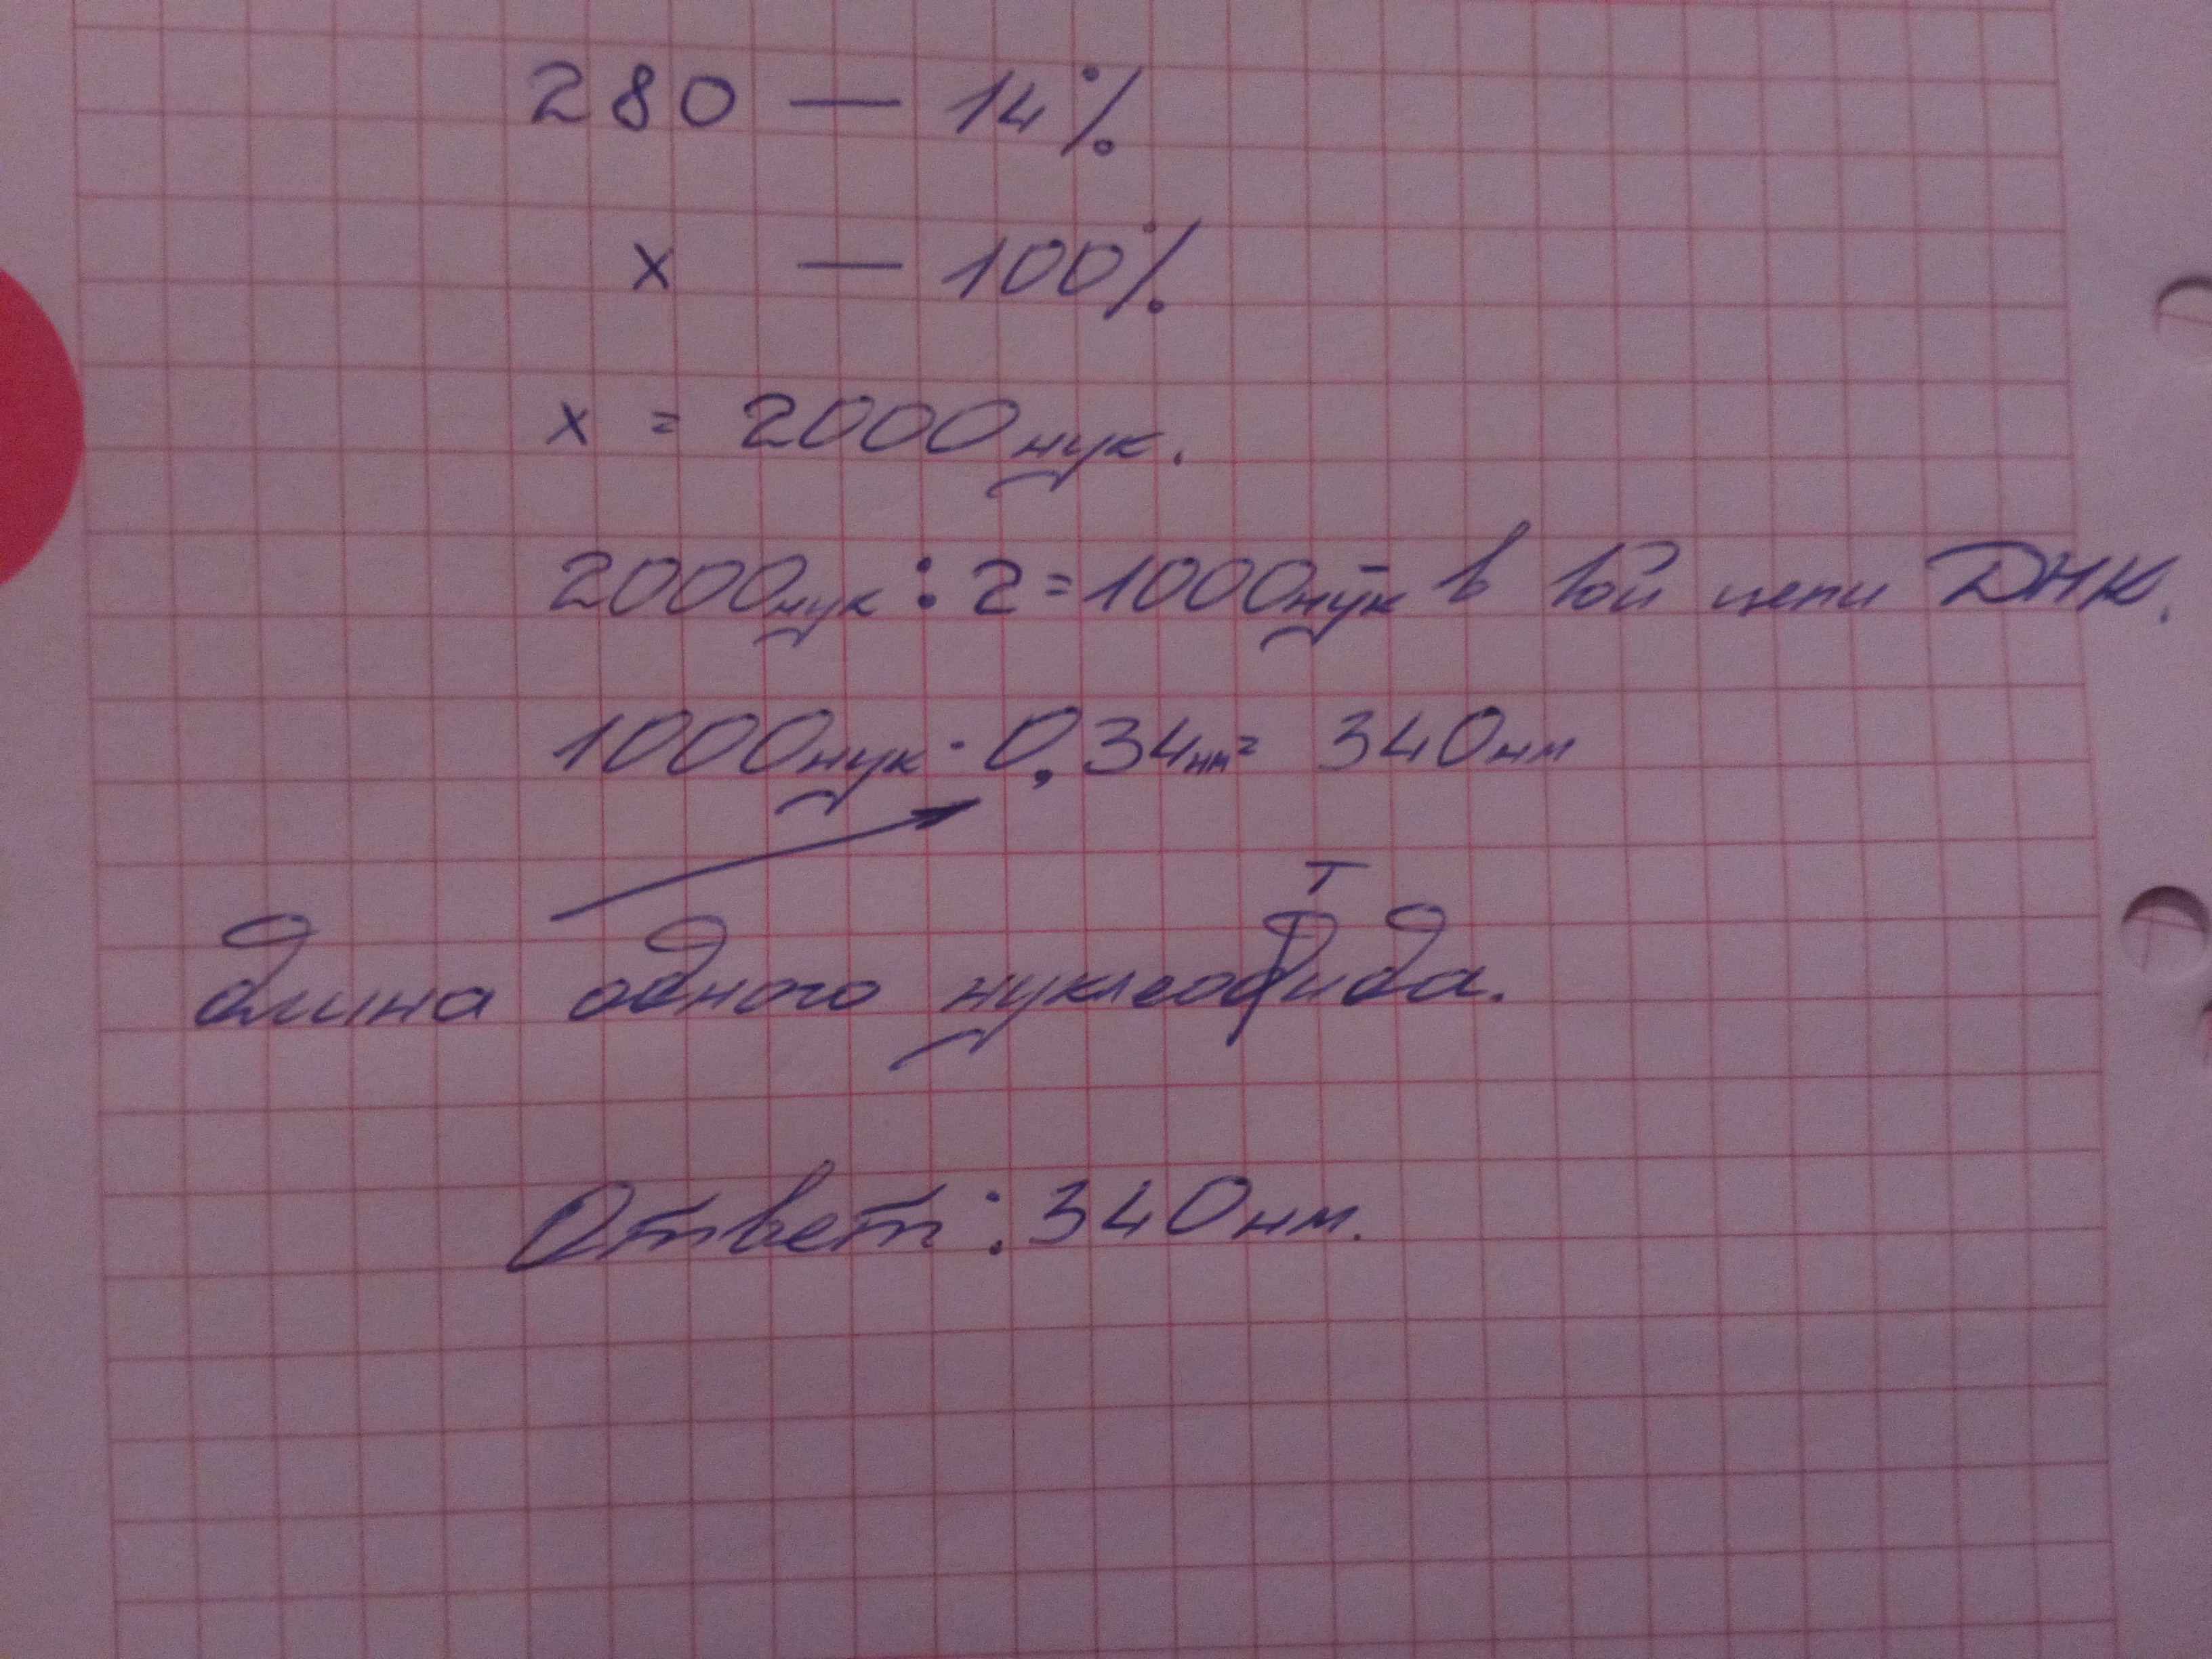 280 — 14%
x — 100%
x = 2000 нук.
2000 нук : 2 = 1000 нук в 1ой цепи ДНК.
1000 нук · 0,34 нм = 340 нм
т
длина одного нуклеодида.
Ответ: 340 нм.